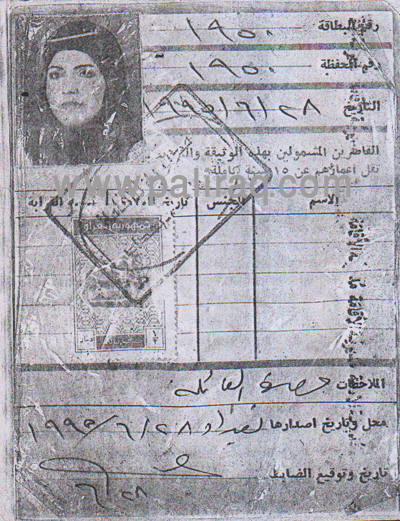 رقم البطاقة ١٩٥٠
رقم المحفظة ١٩٥٠
التاريخ ١٩٩٥/٦/٢٨
القاصرين المشمولين بهذه الوثيقة والذين
تقل اعمارهم عن ١٥ سنة كاملة
www.paliraq.com
الاسم الجنس تاريخ القرابة
جمهورية العراق
الملاحظات
محل وتاريخ اصدارها بغداد ١٩٩٥/٦/٢٨
تاريخ وتوقيع الضابط
٦/٢٨